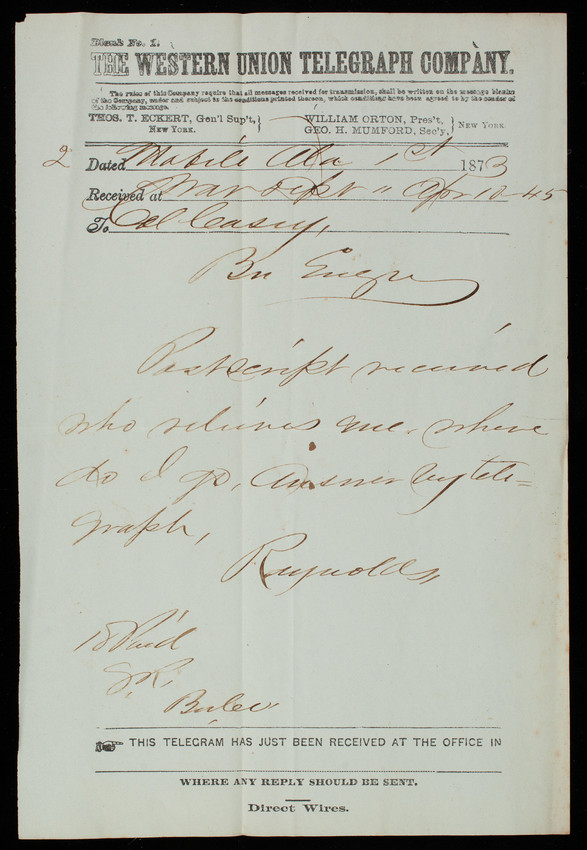 Blank No. 1.
THE WESTERN UNION TELEGRAPH COMPANY.
The rules of this Company require that all messages received for transmission, shall be written on the message blanks
of the Company, under and subject to the conditions printed thereon, which conditions have been agreed to by the sender of
the following message.
THOS. T. ECKERT, Gen'l Sup't, NEW YORK.
WILLIAM ORTON, Pres't, GEO. H. MUMFORD, Sec'y, NEW YORK.
2 Dated Mobile Ala 1st 1873
Received at War Dept " Apr 10 45
To Col Casey,
Bu Engrs
Postscript received
who relieves me. where
do I go, Answer by tele=
graph,
Reynolds,
18 Paid
THIS TELEGRAM HAS JUST BEEN RECEIVED AT THE OFFICE IN
WHERE ANY REPLY SHOULD BE SENT.
Direct Wires.